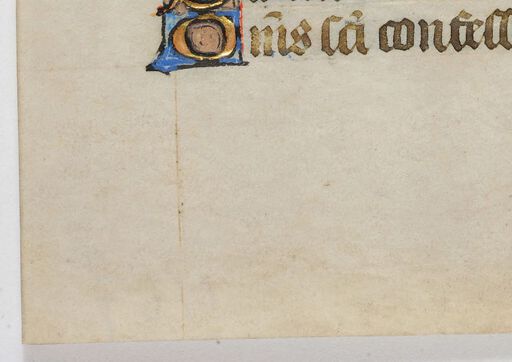 Om̄s sc̄i confess